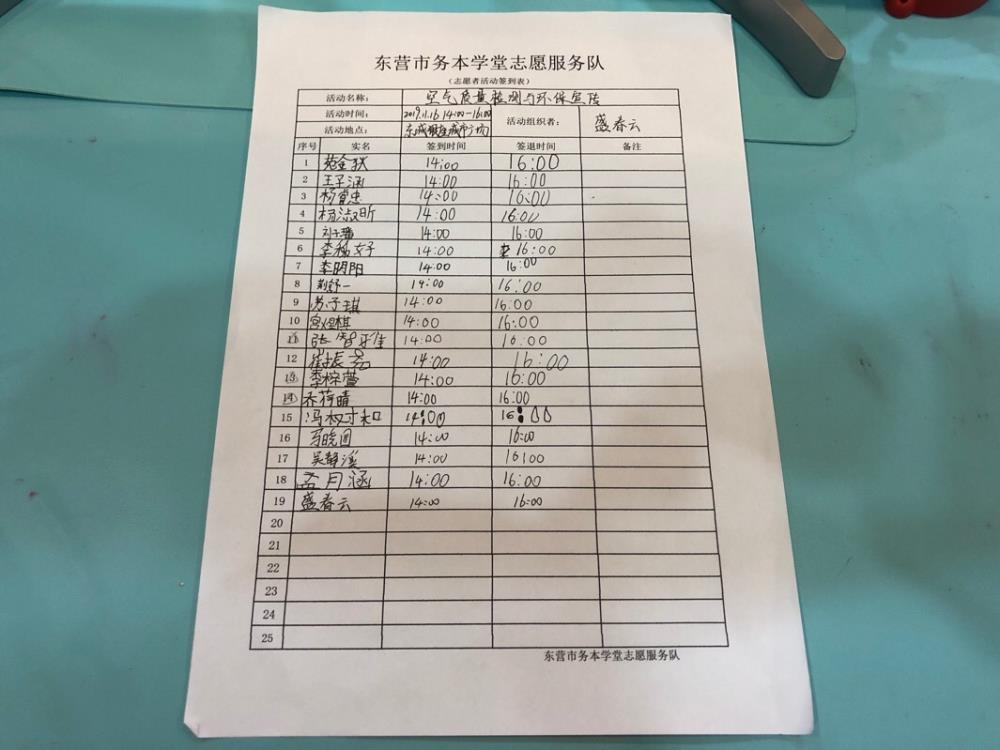 东营市务本学堂志愿服务队
（志愿者活动签到表）
活动名称： 空气质量检测与环保宣传
活动时间： 2019.11.16 14:00-16:00 活动组织者： 盛春云
活动地点： 东城 城市广场
序号 实名 签到时间 签退时间 备注
1 苑金狄 14:00 16:00
2 王子涵 14:00 16:00
3 杨睿忠 14:00 16:00
4 杨淑昕 14:00 16:00
5 刘子璠 14:00 16:00
6 李 14:00 16:00
7 李明阳 14:00 16:00
8 荆舒一 14:00 16:00
9 苏子琪 14:00 16:00
10 宫煜棋 14:00 16:00
11 张智雅 14:00 16:00
12 崔振 14:00 16:00
13 李梓萱 14:00 16:00
14 乔荷晴 14:00 16:00
15 冯 14:00 16:00
16 马晓园 14:00 16:00
17 吴静溪 14:00 16:00
18 孟月涵 14:00 16:00
19 盛春云 14:00 16:00
20
21
22
23
24
25
东营市务本学堂志愿服务队